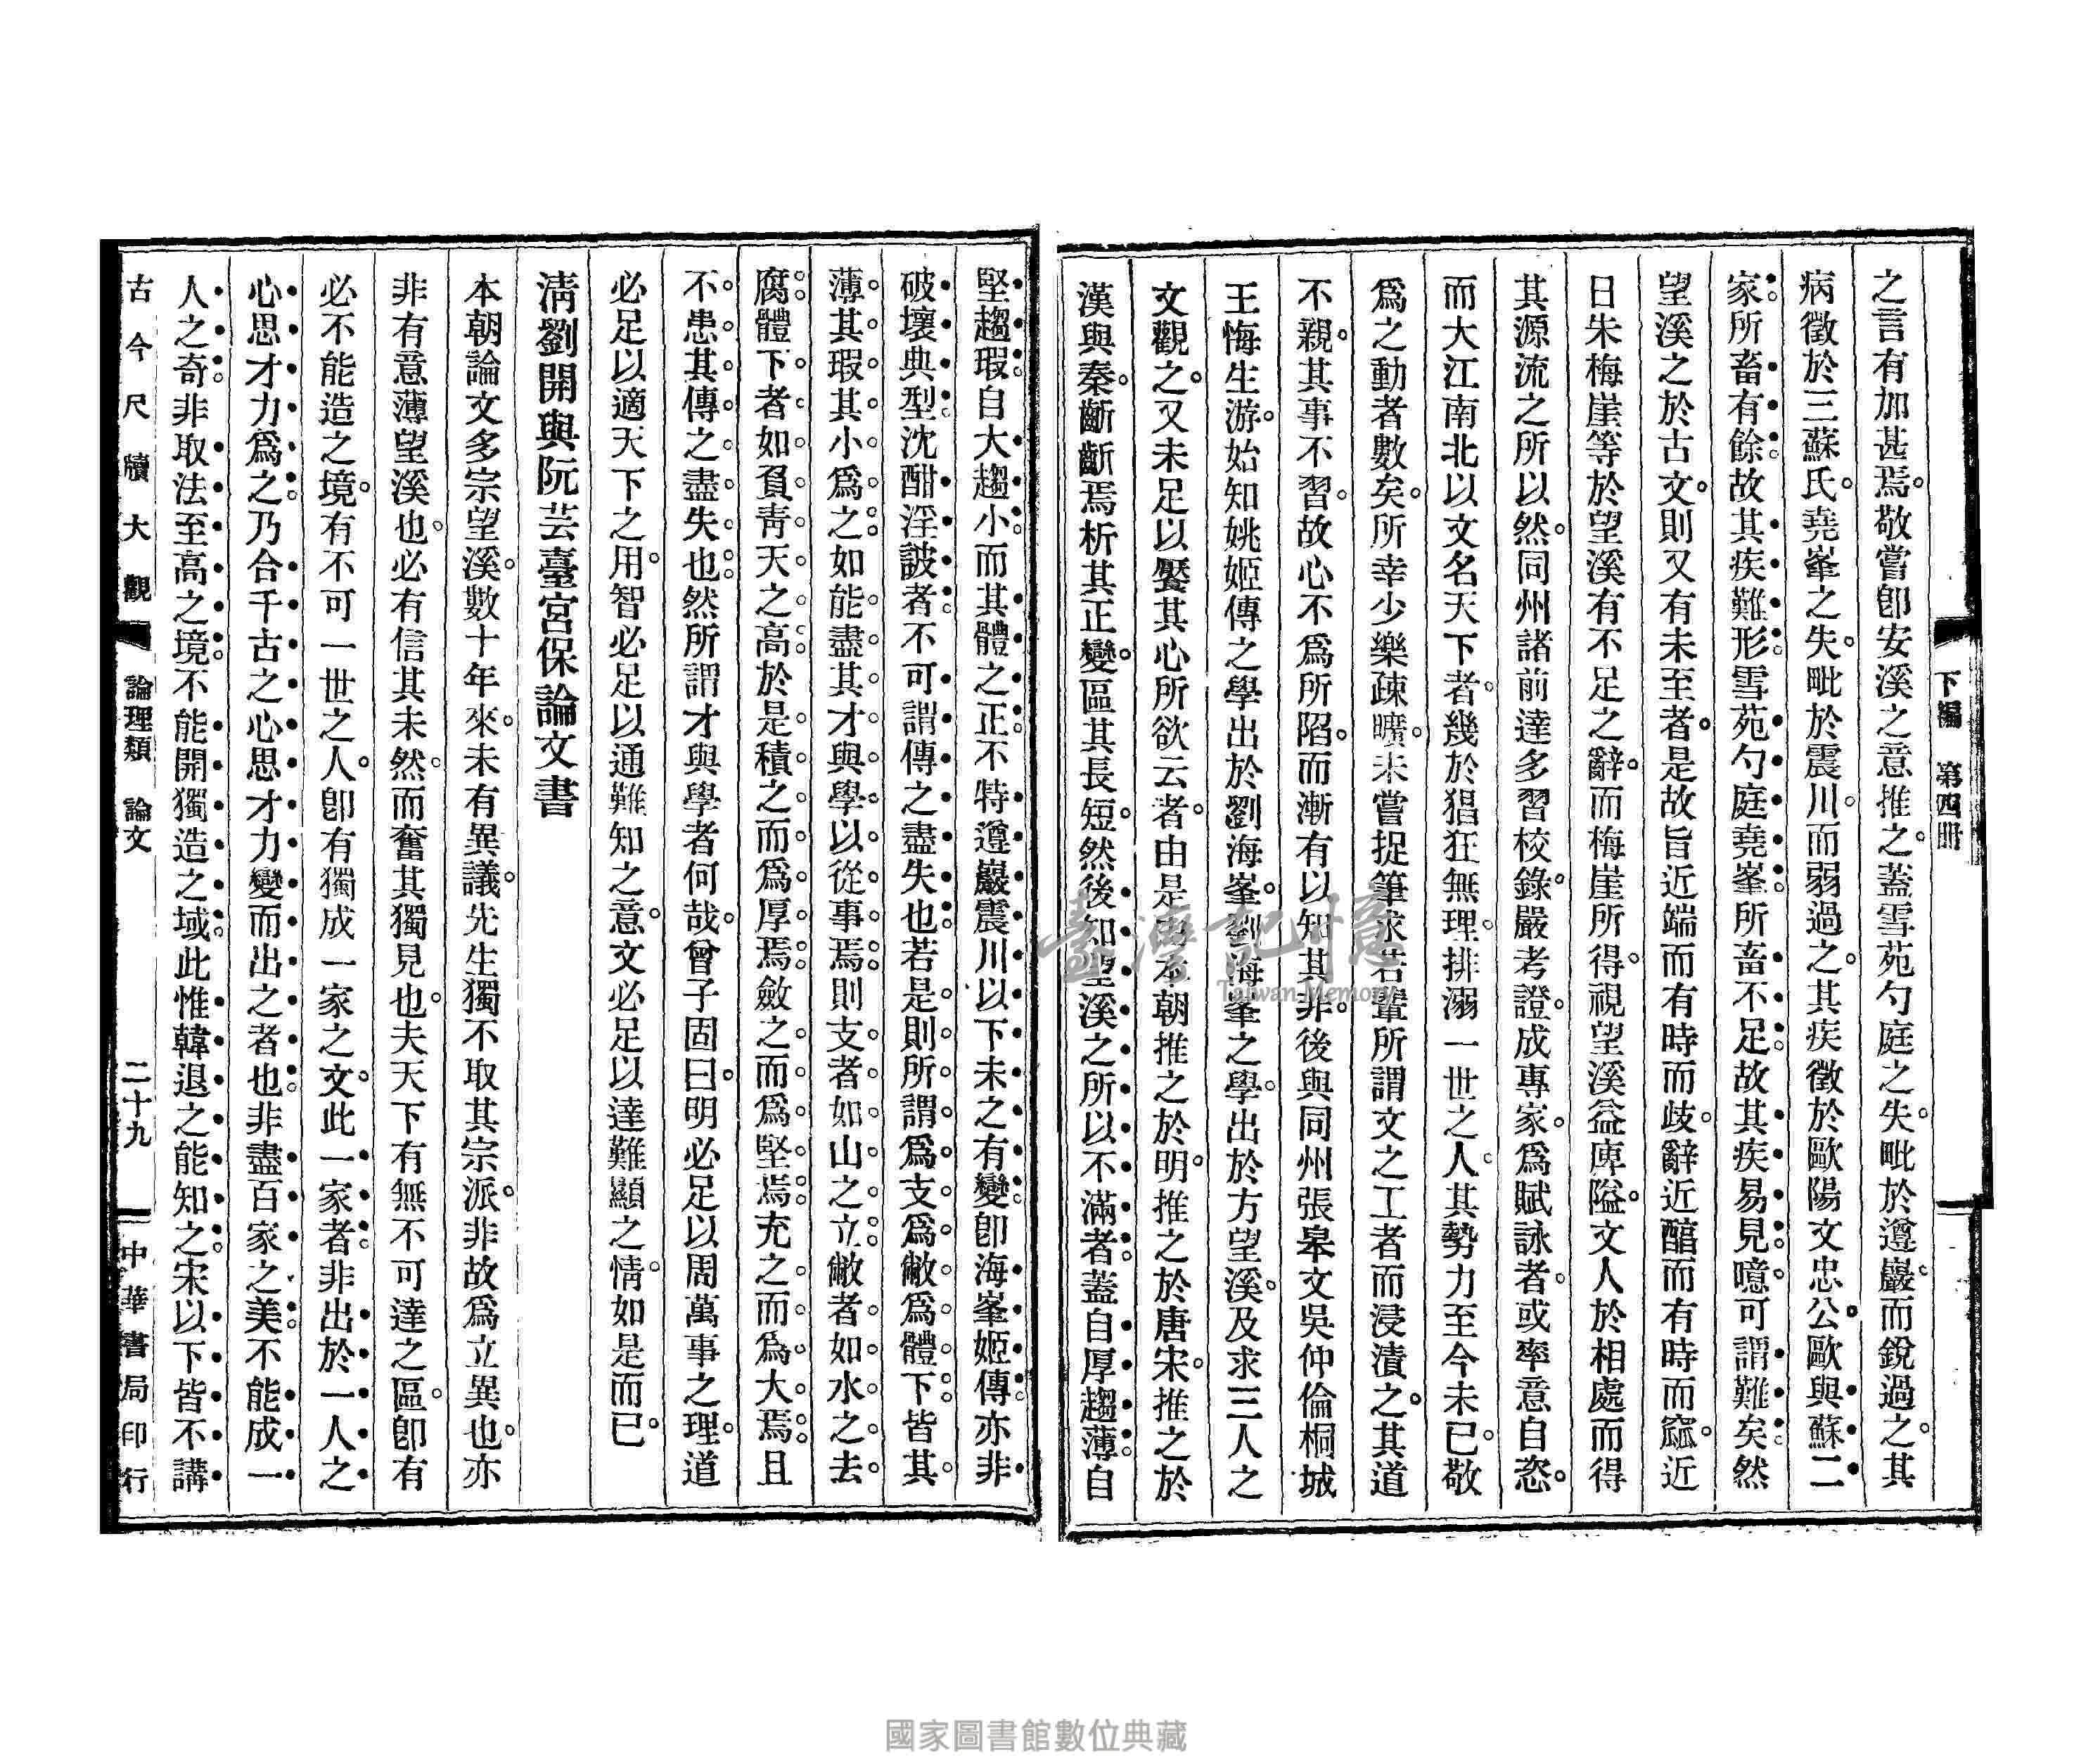 下編　第四冊
之言有加甚焉。敬嘗卽安溪之意推之。蓋雪苑勺庭之失。毗於遵巖。而銳過之。其
病徵於三蘇氏。堯峯之失。毗於震川。而弱過之。其疾徵於歐陽文忠公。歐與蘇二
家所畜有餘。故其疾難形。雪苑勺庭堯峯所畜不足。故其疾易見。噫。可謂難矣。然
望溪之於古文。則又有未至者。是故旨近端而有時而歧。辭近醇而有時而窳。近
日朱梅崖等於望溪有不足之辭。而梅崖所得。視望溪益庳隘。文人於相處而得
其源流之所以然。同州諸前達多習校錄。嚴考證。成專家。爲賦詠者。或率意自恣。
而大江南北以文名天下者。幾於猖狂無理。排溺一世之人。其勢力至今未已。敬
爲之動者數矣。所幸少樂疎曠。未嘗捉筆求若輩所謂文之工者而浸漬之。其道
不親。其事不習。故心不爲所陷。而漸有以知其非。後與同州張臯文吳仲倫桐城
王悔生游。始知姚姬傳之學出於劉海峯。劉海峯之學。出於方望溪。及求三人之
文觀之。又未足以饜其心所欲云者。由是由本朝推之於明。推之於唐宋。推之於
漢與秦。齗齗焉析其正變。區其長短。然後知望溪之所以不滿者。蓋自厚趨薄。自
堅趨瑕。自大趨小。而其體之正。不特遵巖震川以下未之有變。卽海峯姬傳。亦非
破壞典型。沈酣淫詖者。不可謂傳之盡失也。若是。則所謂爲支爲敝爲體下。皆其
薄其瑕其小爲之。如能盡其才與學以從事焉。則支者如山之立。敝者如水之去
腐。體下者如負靑天之高。於是積之而爲厚焉。斂之而爲堅焉。充之而爲大焉。且
不患其傳之盡失也。然所謂才與學者何哉。曾子固曰。明必足以周萬事之理。道
必足以適天下之用。智必足以通難知之意。文必足以達難顯之情。如是而已。
淸劉開與阮芸臺宮保論文書
本朝論文多宗望溪。數十年來。未有異議。先生獨不取其宗派。非故爲立異也。亦
非有意薄望溪也。必有信其未然。而奮其獨見也。夫天下有無不可達之區。卽有
必不能造之境。有不可一世之人。卽有獨成一家之文。此一家者。非出於一人之
心思才力爲之。乃合千古之心思才力變而出之者也。非盡百家之美。不能成一
人之奇。非取法至高之境。不能開獨造之域。此惟韓退之能知之。宋以下皆不講
古今尺牘大觀　論理類　論文　二十九　中華書局印行
臺灣記憶
Taiwan Memory
國家圖書館數位典藏